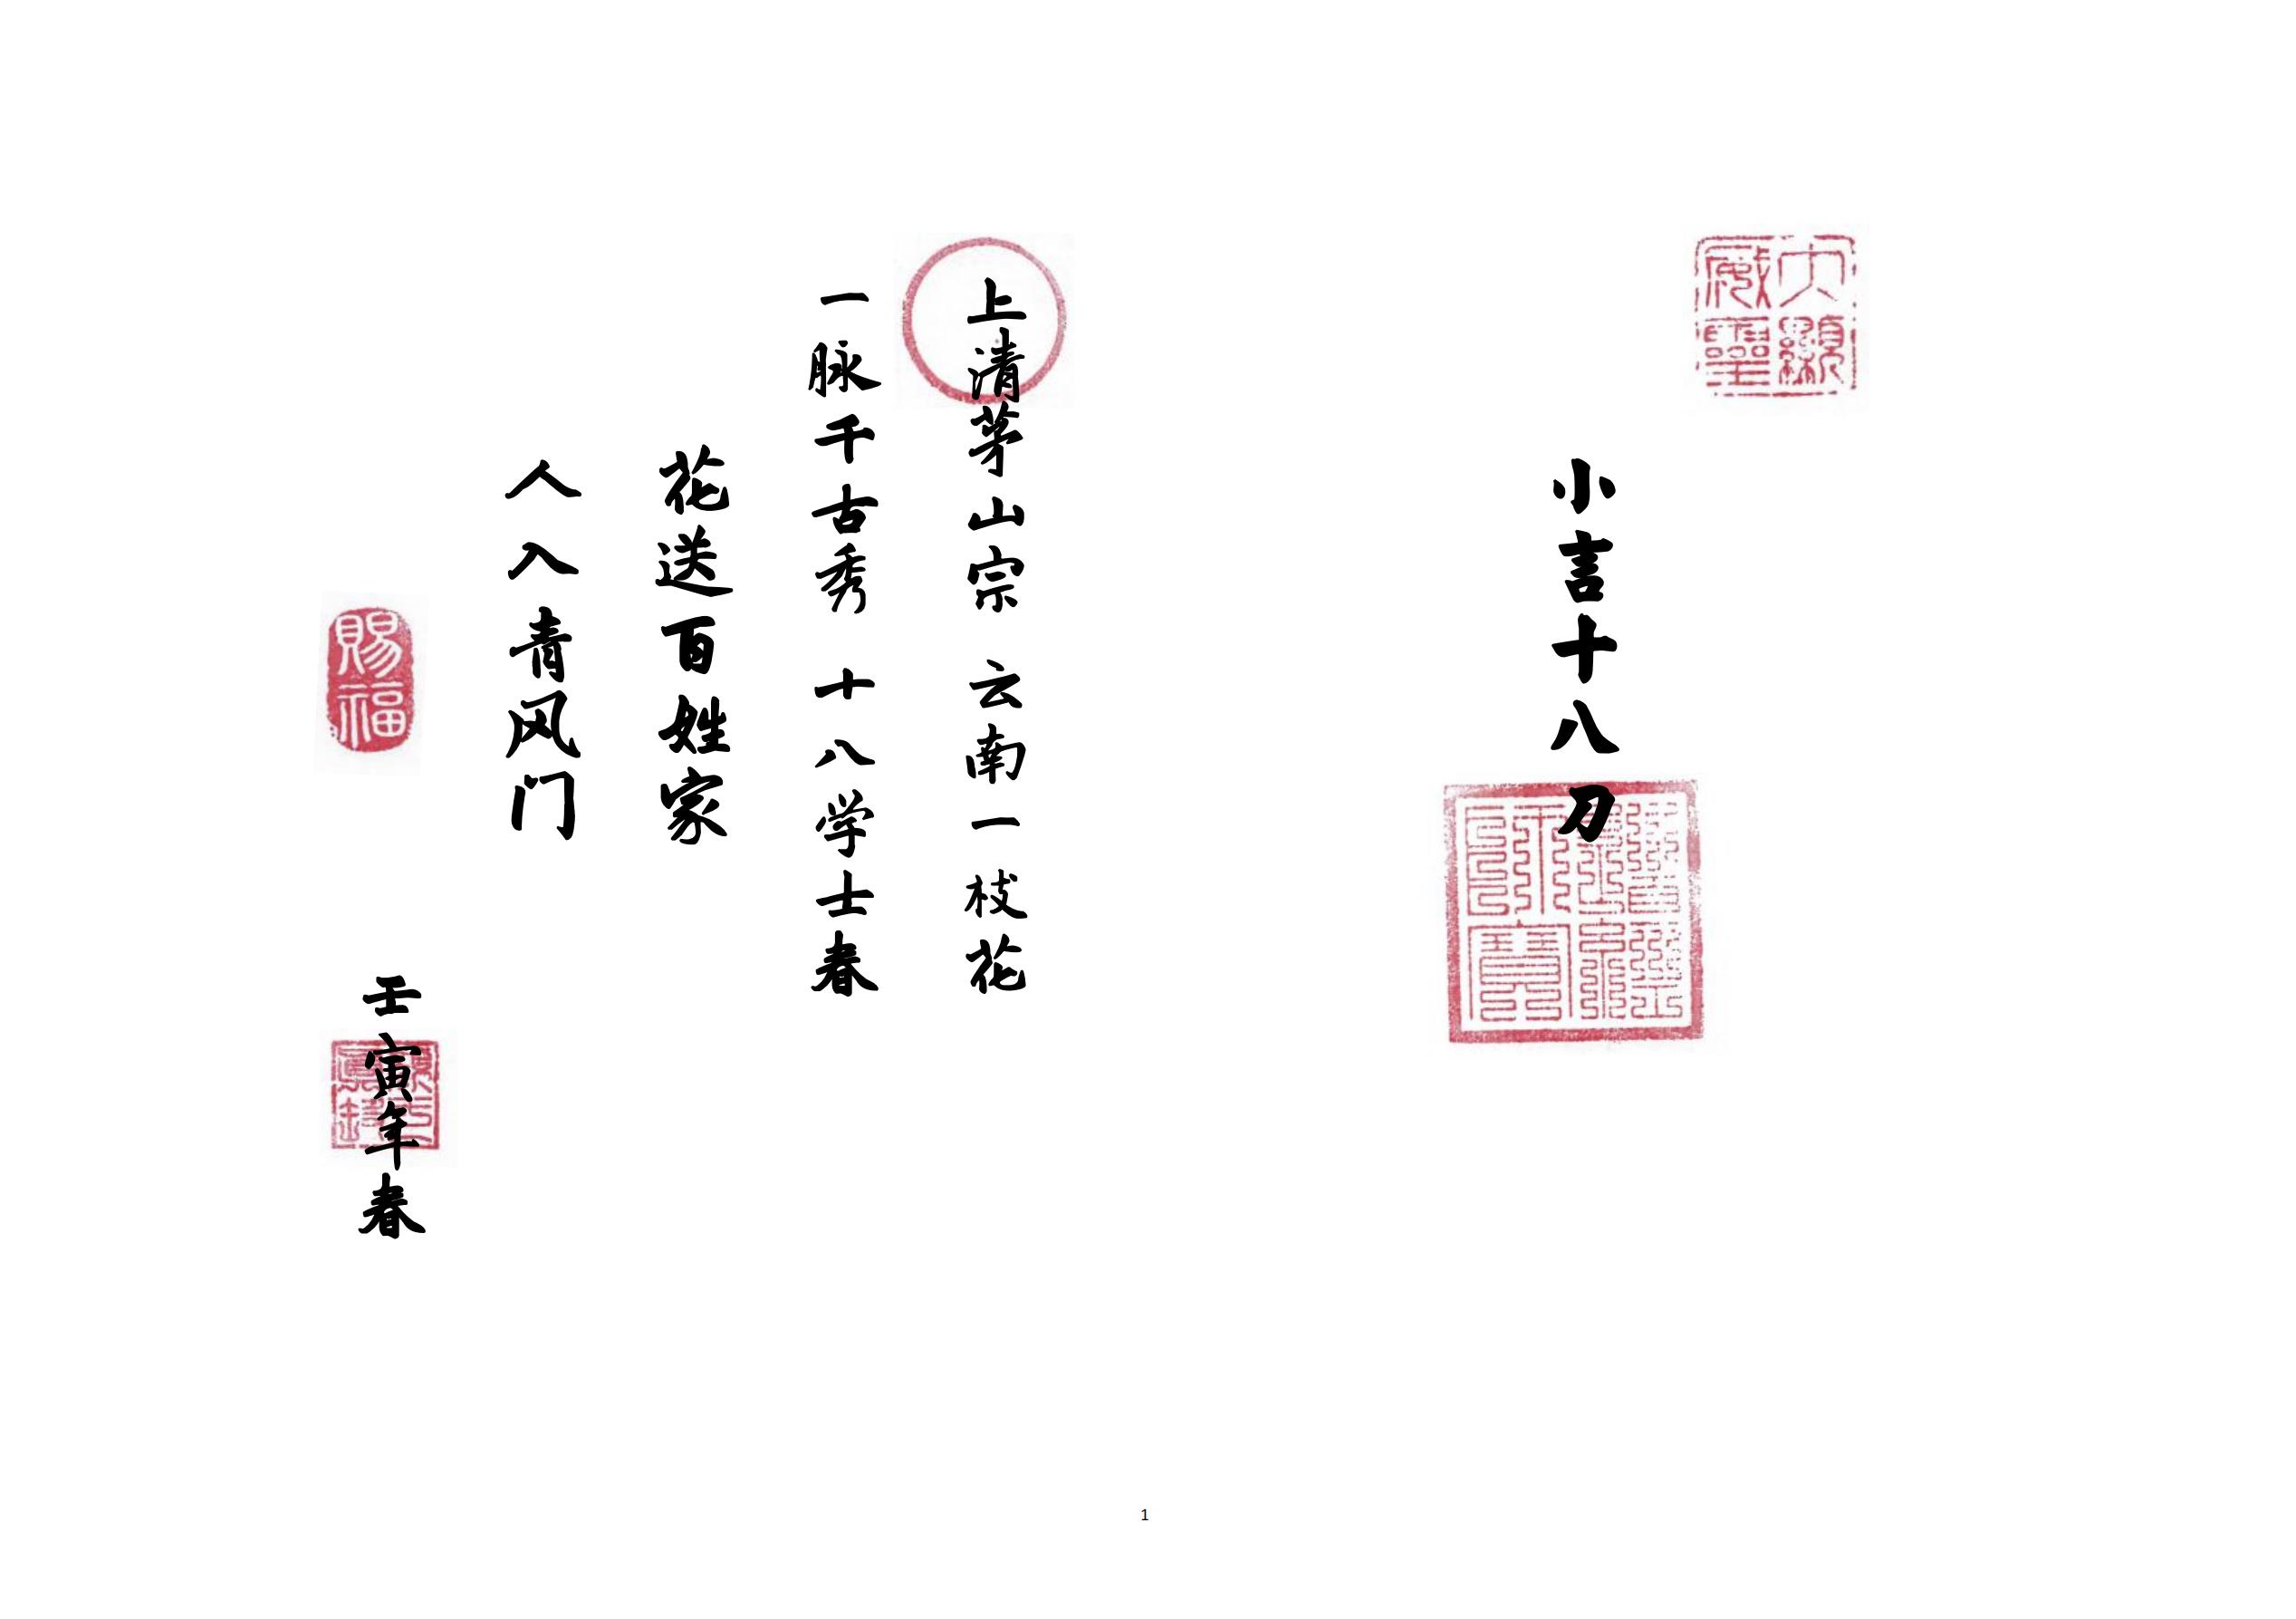 大顯
威靈
小言十八刀
上清茅山宗 云南一枝花
一脉千古秀 十八学士春
花送百姓家
人入青风门
賜福
壬寅年春
1